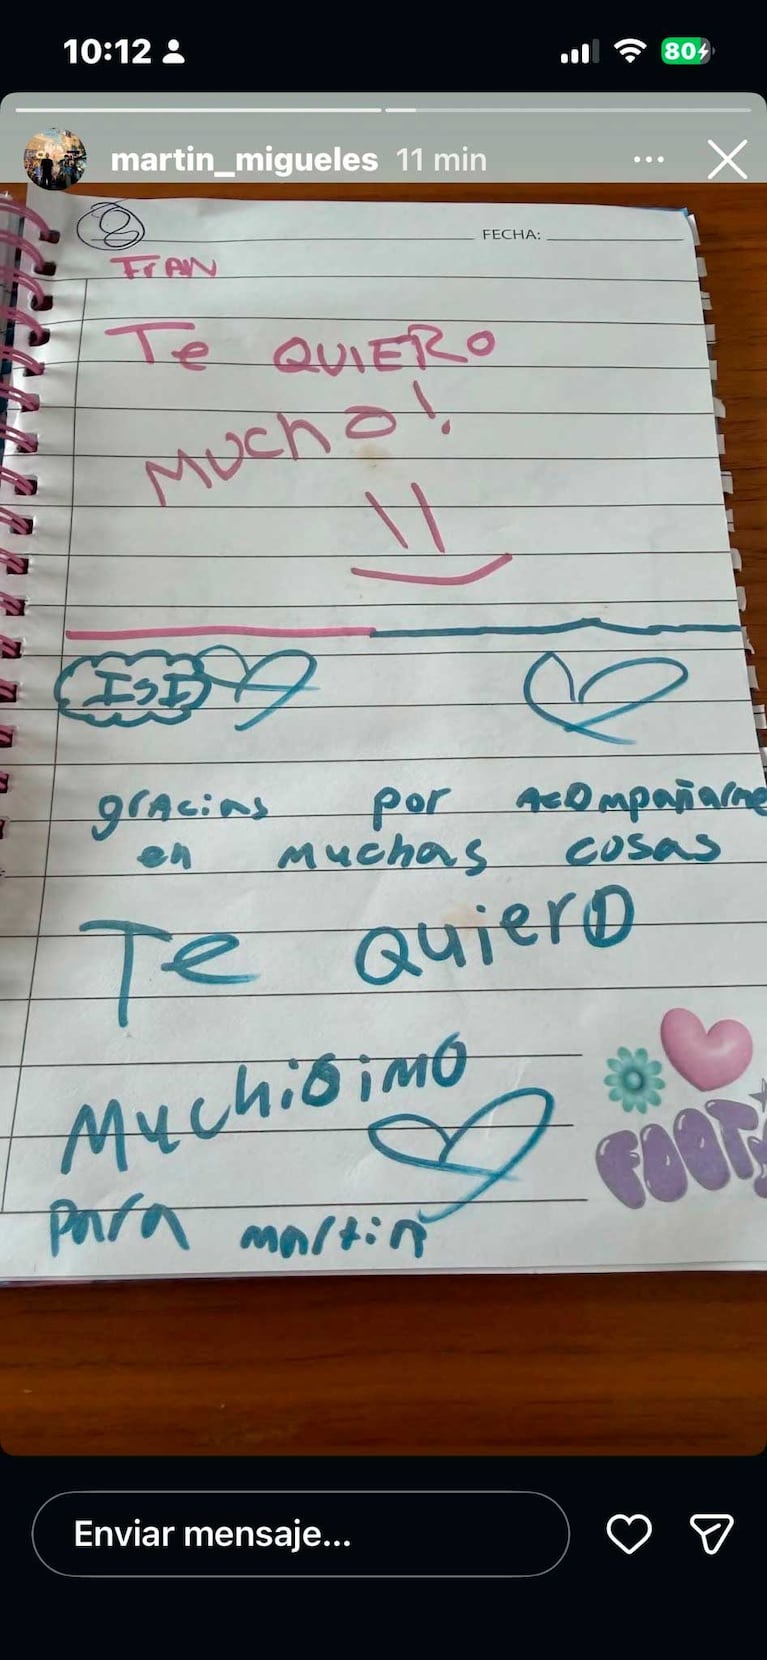 10:12
80
martin_migueles 11 min
FECHA:
FrAN
Te QUIERO
MUChO!
ISI
grAcias por AcOmpañarme
en muchas cosas
Te Quiero
Muchisimo
para martin
FOOT
Enviar mensaje...